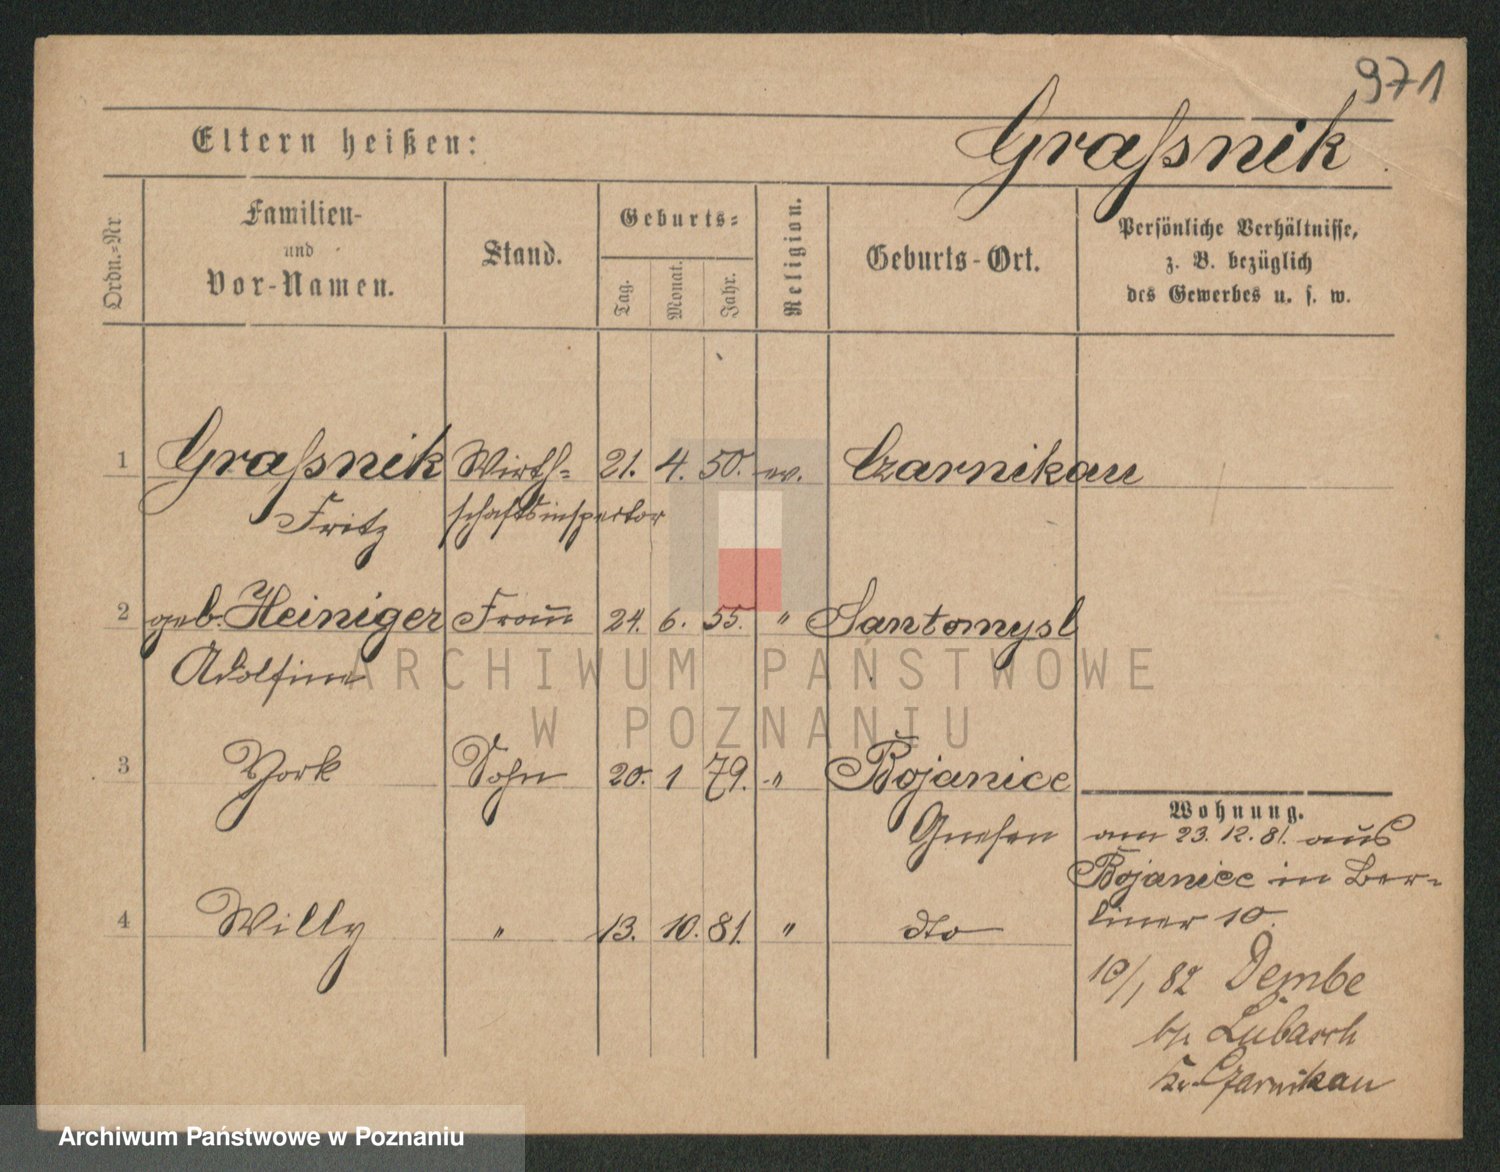 971
Eltern heißen: Graßnik
Ordn.=Nr
Familien-
und
Vor-Namen.
Stand.
Geburts=
Tag.
Monat.
Jahr.
Religion.
Geburts-Ort.
Persönliche Verhältnisse,
z. B. bezüglich
des Gewerbes u. s. w.
1 Graßnik Wirth= 21. 4. 50. ev. Czarnikau
Fritz schaftsinspector
2 geb. Heiniger Frau 24. 6. 55. " Santomysl
Adolfine
3 York Sohn 20. 1 79. " Bojanice
Gnesen
4 Willy " 13. 10. 81. " dto
Wohnung.
am 23. 12. 81. aus
Bojanice in Ber-
liner 10.
10/1 82 Dembe
bei Lubasch
Kr. Czarnikau
ARCHIWUM PAŃSTWOWE
W POZNANIU
Archiwum Państwowe w Poznaniu